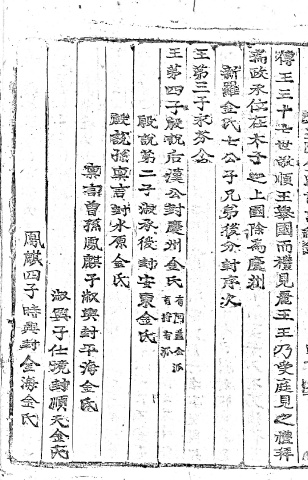 傳王三十七世敬順王擧國而禮見麗王王乃受庭見之禮拜
爲政丞位在太子上國除爲慶州
新羅金氏七公子兄弟後分封序次
王第三子永芬公
王第四子殷說后漢公封慶州金氏
殷說第二子 承後封安東金氏
殷說孫稟言封水原金氏
稟言曾孫鳳麒子淑興封平海金氏
淑興子仕 封順天金氏
鳳麒四子時興封金海金氏